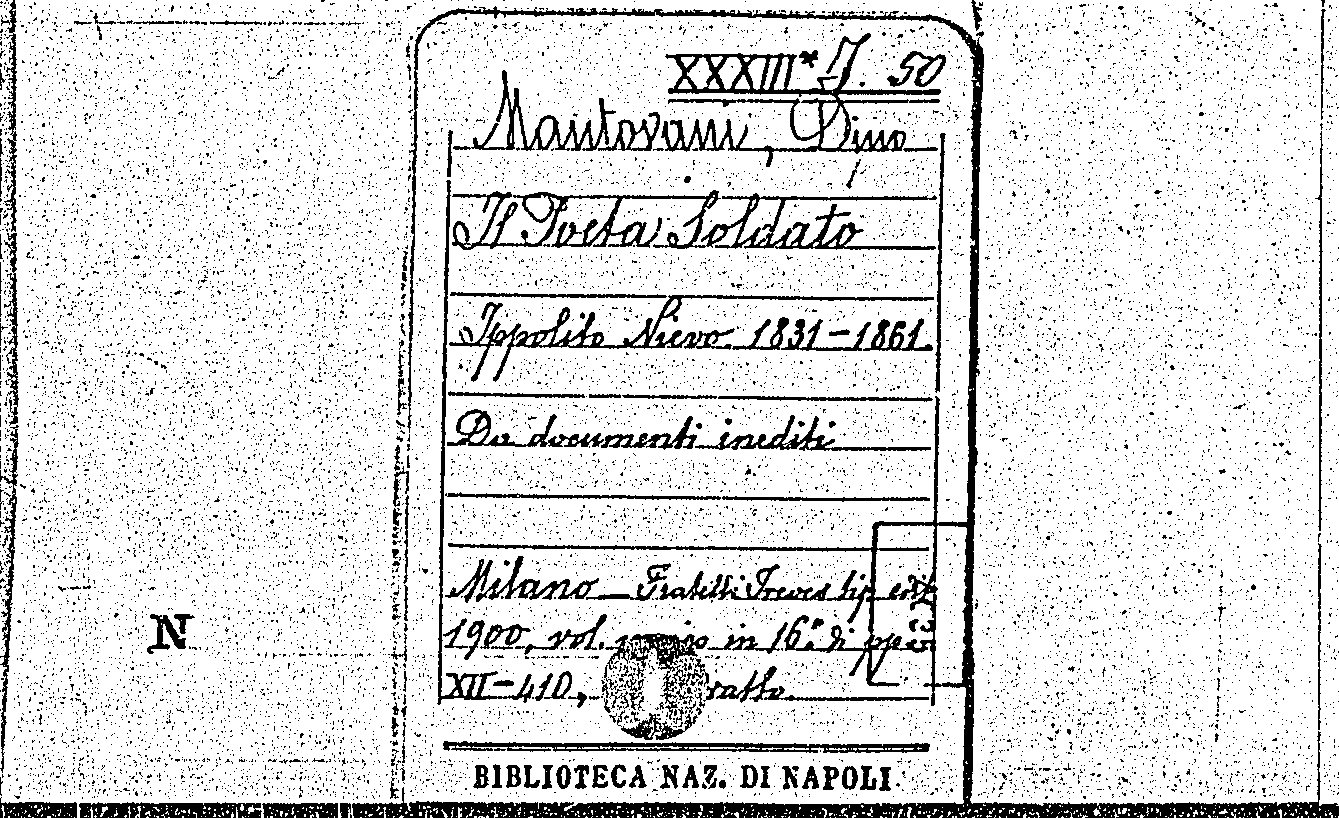 XXXIII* J. 50
Mantovani, Dino
Il Poeta Soldato
Ippolito Nievo 1831-1861.
Da documenti inediti
Milano - Fratelli Treves tip edit
1900, vol. unico in 16º. di pp
XII-410,
N
BIBLIOTECA NAZ. DI NAPOLI.